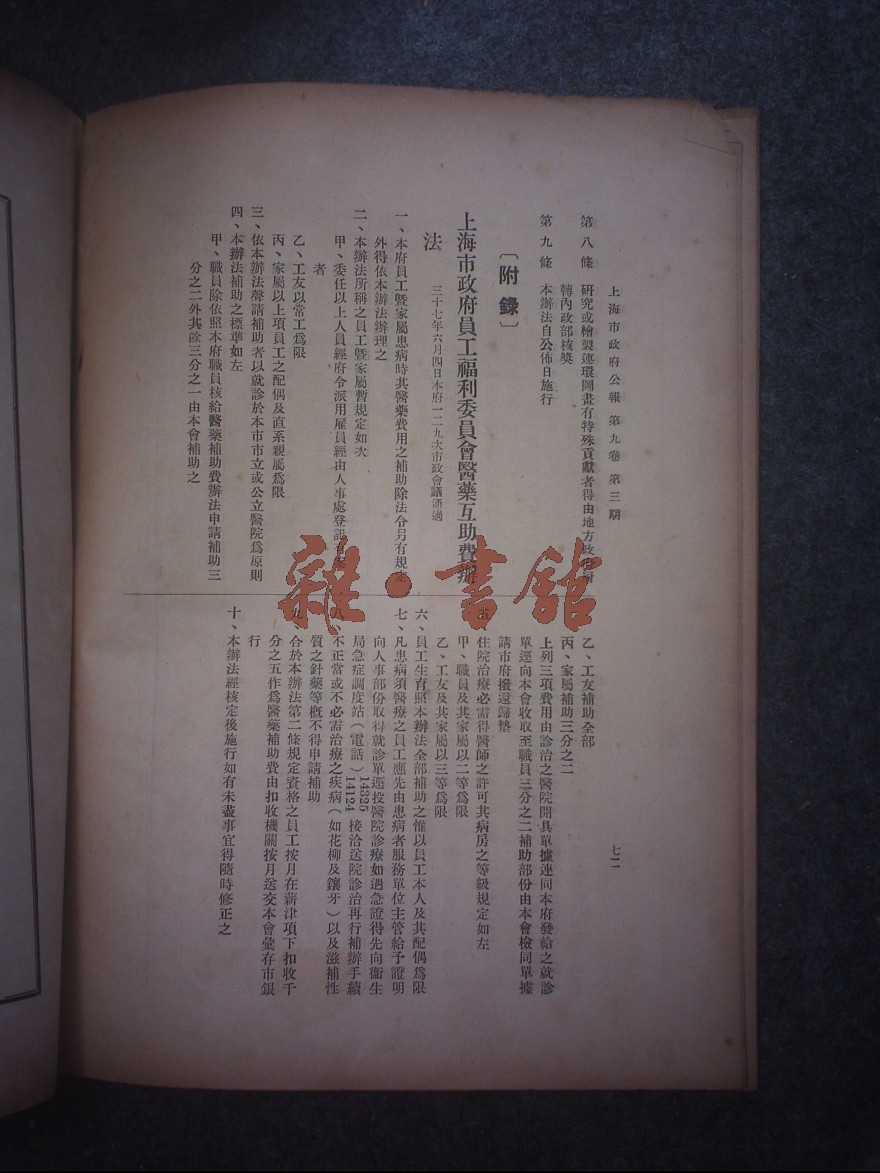 上海市政府公報 第九卷 第三期
七二
第八條 研究或繪製連環圖畫有特殊貢獻者得由地方政府
轉內政部核獎
第九條 本辦法自公佈日施行
〔附錄〕
上海市政府員工福利委員會醫藥互助費辦
法 三十七年六月四日本府一二九次市政會議通過
一、本府員工暨家屬患病時其醫藥費用之補助除法令另有規定
外得依本辦法辦理之
二、本辦法所稱之員工暨家屬暫規定如次
甲、委任以上人員經府令派用雇員經由人事處登記有案
者
乙、工友以常工為限
丙、家屬以上項員工之配偶及直系親屬為限
三、依本辦法聲請補助者以就診於本市市立或公立醫院為原則
四、本辦法補助之標準如左
甲、職員除依照本府職員核給醫藥補助費辦法申請補助三
分之二外其餘三分之一由本會補助之
乙、工友補助全部
丙、家屬補助三分之二
上列三項費用由診治之醫院開具單據連同本府發給之就診
單逕向本會收取至職員三分之二補助部份由本會檢同單據
請市府撥還歸墊
五、住院治療必需得醫師之許可其病房之等級規定如左
甲、職員及其家屬以二等為限
乙、工友及其家屬以三等為限
六、員工生育照本辦法全部補助之惟以員工本人及其配偶為限
七、凡患病須醫療之員工應先由患病者服務單位主管給予證明
向人事部份取得就診單逕投醫院診療如遇急證得先向衞生
局急症調度站(電話)14325 14124 接洽送院診治再行補辦手續
八、不正當或不必需治療之疾病(如花柳及鑲牙)以及滋補性
質之針藥等概不得申請補助
九、合於本辦法第二條規定資格之員工按月在薪津項下扣收千
分之五作為醫藥補助費由扣收機關按月送交本會彙存市銀
行
十、本辦法經核定後施行如有未盡事宜得隨時修正之
雜·書館